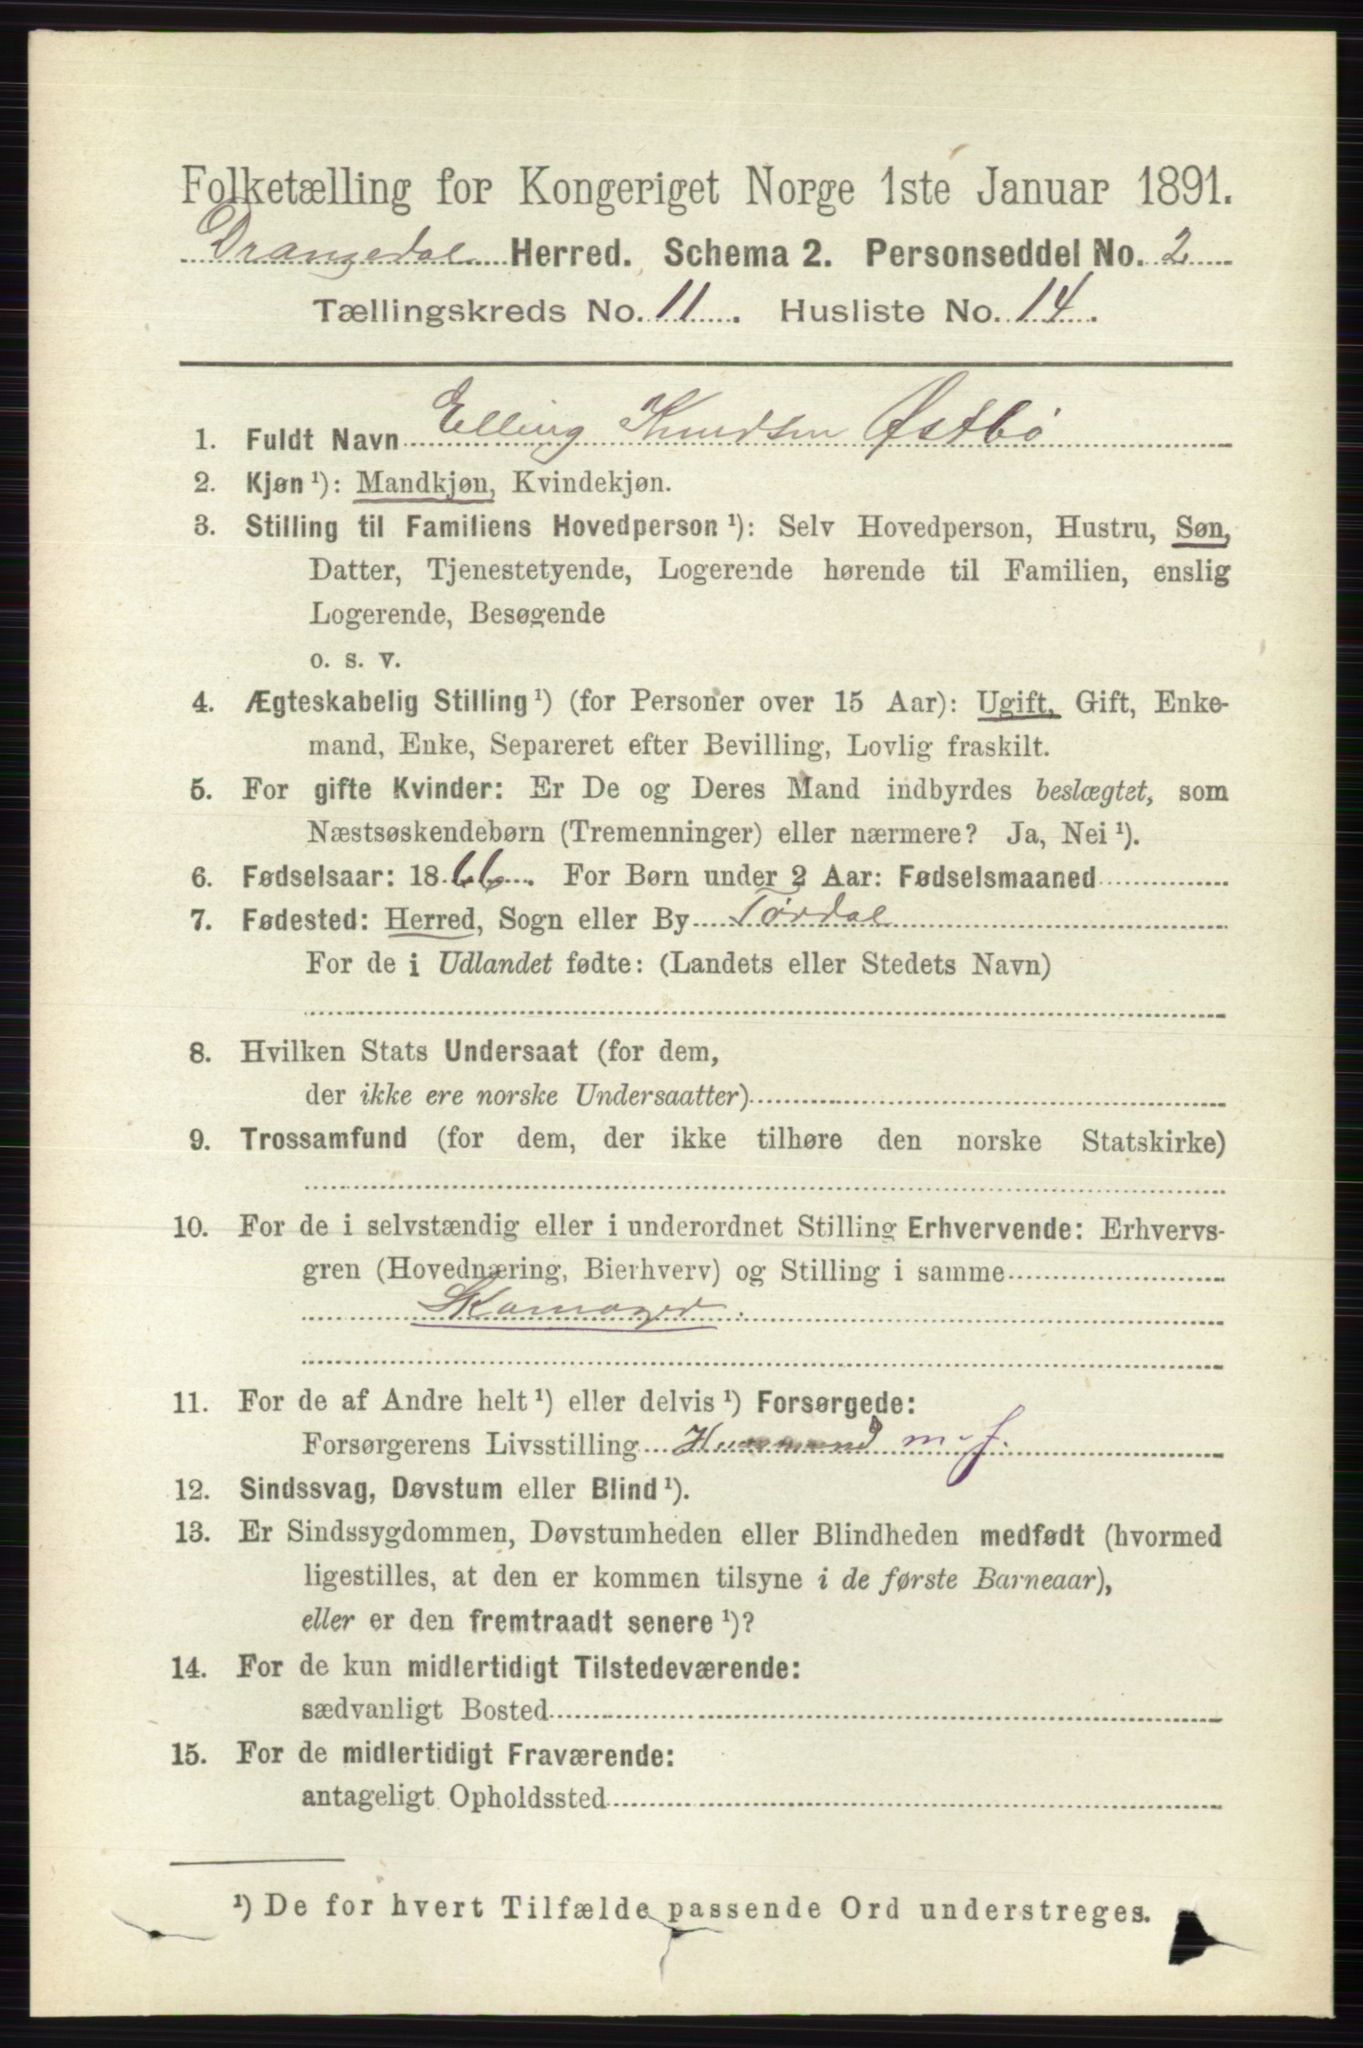 Folketælling for Kongeriget Norge 1ste Januar 1891.
Drangedal Herred. Schema 2. Personseddel No. 2
Tællingskreds No. 11. Husliste No. 14.
1. Fuldt Navn Elling Knudsen Østbö
2. Kjøn ¹): Mandkjøn, Kvindekjøn.
3. Stilling til Familiens Hovedperson ¹): Selv Hovedperson, Hustru, Søn,
Datter, Tjenestetyende, Logerende hørende til Familien, enslig
Logerende, Besøgende
o. s. v.
4. Ægteskabelig Stilling ¹) (for Personer over 15 Aar): Ugift, Gift, Enke-
mand, Enke, Separeret efter Bevilling, Lovlig fraskilt.
5. For gifte Kvinder: Er De og Deres Mand indbyrdes beslægtet, som
Næstsøskendebørn (Tremenninger) eller nærmere? Ja, Nei ¹).
6. Fødselsaar: 1866. For Børn under 2 Aar: Fødselsmaaned
7. Fødested: Herred, Sogn eller By Tördal
For de i Udlandet fødte: (Landets eller Stedets Navn)
8. Hvilken Stats Undersaat (for dem,
der ikke ere norske Undersaatter)
9. Trossamfund (for dem, der ikke tilhøre den norske Statskirke)
10. For de i selvstændig eller i underordnet Stilling Erhvervende: Erhvervs-
gren (Hovednæring, Bierhverv) og Stilling i samme
Skomager
11. For de af Andre helt ¹) eller delvis ¹) Forsørgede:
Forsørgerens Livsstilling Husmand m. f.
12. Sindssvag, Døvstum eller Blind ¹).
13. Er Sindssygdommen, Døvstumheden eller Blindheden medfødt (hvormed
ligestilles, at den er kommen tilsyne i de første Barneaar),
eller er den fremtraadt senere ¹)?
14. For de kun midlertidigt Tilstedeværende:
sædvanligt Bosted
15. For de midlertidigt Fraværende:
antageligt Opholdssted
¹) De for hvert Tilfælde passende Ord understreges.